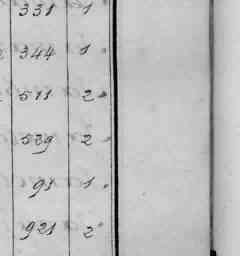 331 1
344 1
511 2
529 2
91 1
921 2